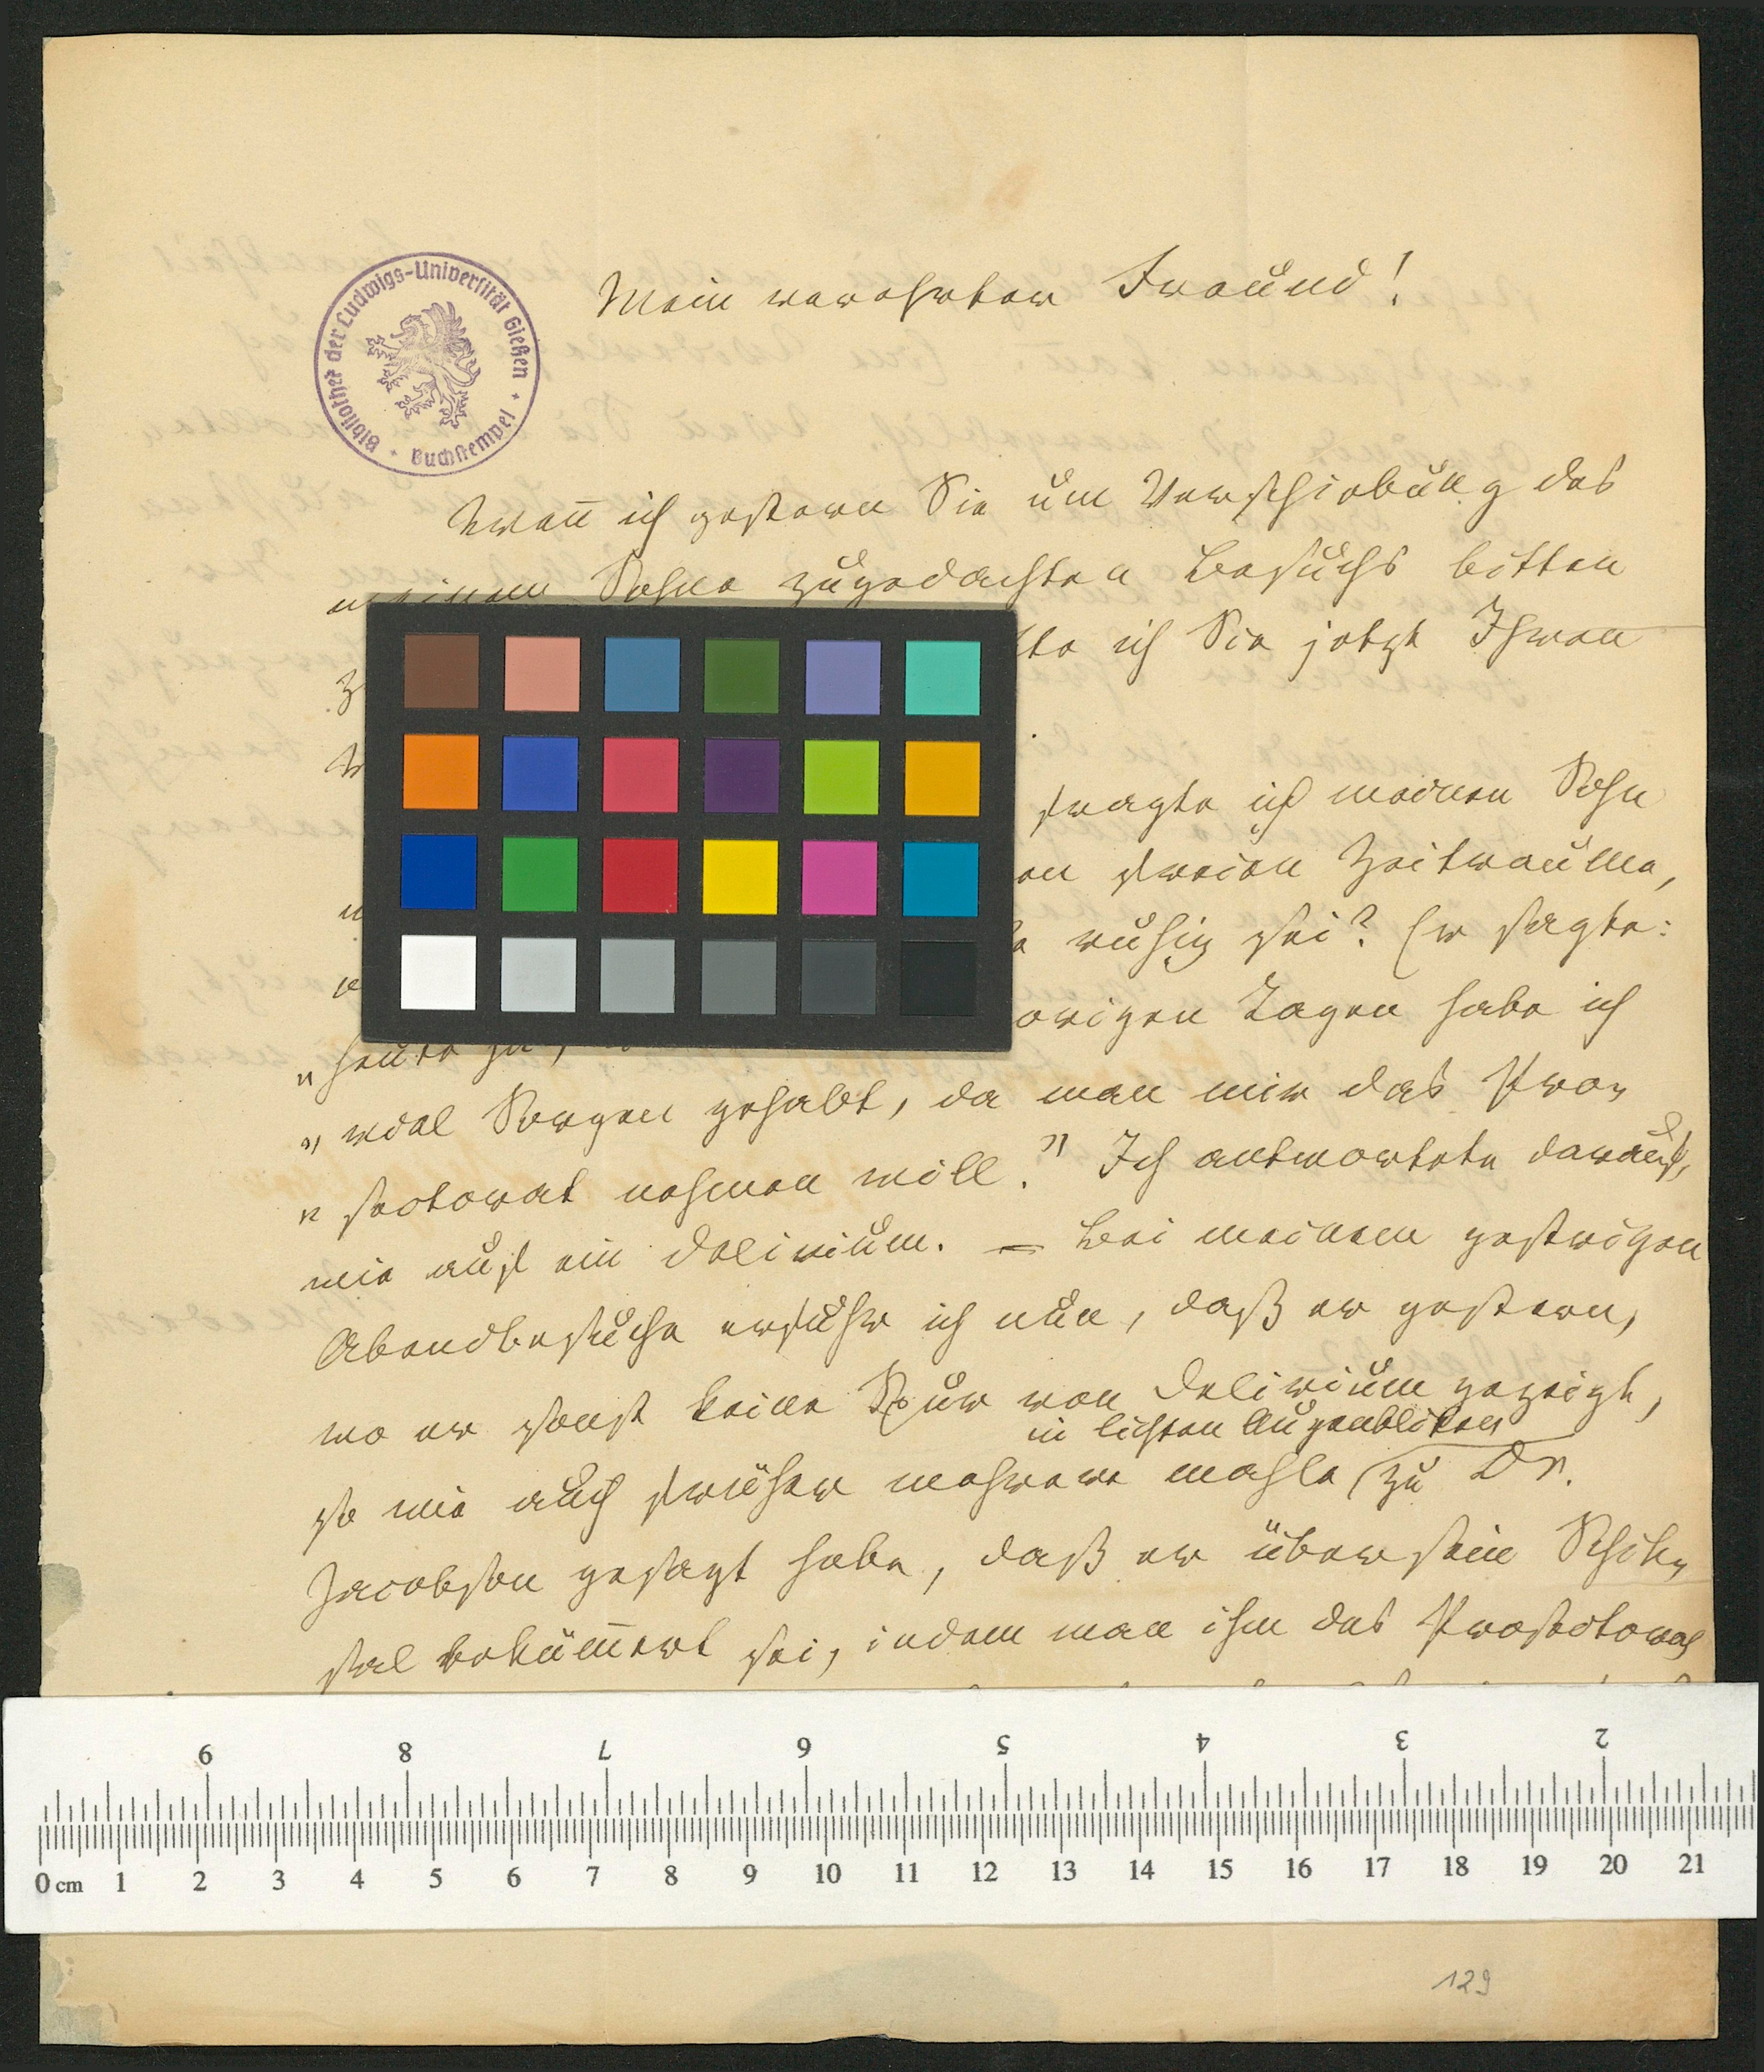 Bibliothek der Ludwigs-Universität Gießen
Buchstempel
Mein verehrter Freund!
Wen̄ ich gestern Sie um Verschiebung des
meinem Sohne zugedachten Besuchs bitten
ich Sie jetzt Ihren
fragte ich meinen Sohn
freien Zeitraume,
ruhig sei? Er sagte:
vorigen Tagen habe ich
„viel Sorgen gehabt, da man mir das Pro-
„rectorat nehmen will." Ich antwortete darauf,
wie auf ein Delirium. – Bei meinem gestrigen
Abendbesuche erfuhr ich nun, daß er gestern,
wo er sonst keine Spur von Delirium gezeigt,
in lichten Augenbliken
so wie auch früher mehrere mahle zu Dr.
Jacobson gesagt habe, daß er über sein Schik-
sal bekümert sei, indem man ihm das Prorectorat
9 8 7 6 5 4 3 2
0 cm 1 2 3 4 5 6 7 8 9 10 11 12 13 14 15 16 17 18 19 20 21
129